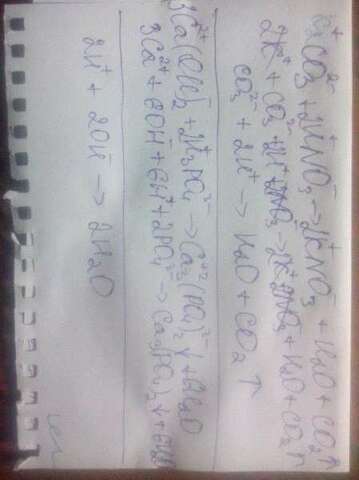 K₂⁺CO₃²⁻ + 2HNO₃ → 2KNO₃ + H₂O + CO₂↑
2K⁺ + CO₃²⁻ + 2H⁺ + 2NO₃⁻ → 2K⁺ + 2NO₃⁻ + H₂O + CO₂↑
CO₃²⁻ + 2H⁺ → H₂O + CO₂↑
3Ca(OH)₂ + 2H₃PO₄ → Ca₃(PO₄)₂↓ + 6H₂O
3Ca²⁺ + 6OH⁻ + 6H⁺ + 2PO₄³⁻ → Ca₃(PO₄)₂↓ + 6H₂O
2H⁺ + 2OH⁻ → 2H₂O